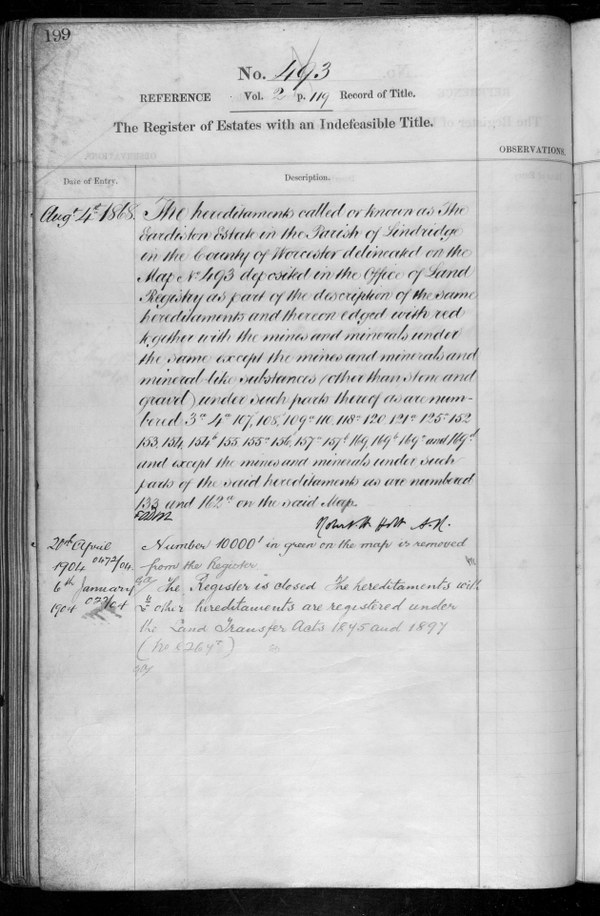 199
No. 493
REFERENCE Vol. 2 p. 119 Record of Title.
The Register of Estates with an Indefeasible Title.
OBSERVATIONS.
Date of Entry.
Description.
Augt 4th 1868. The hereditaments called or known as The
Eardiston Estate in the Parish of Lindridge
in the County of Worcester delineated on the
Map No 493 deposited in the Office of Land
Registry as part of the description of the same
hereditaments and thereon edged with red
together with the mines and minerals under
the same except the mines and minerals and
mineral-like substances (other than stone and
gravel) under such parts thereof as are num-
bered 3a 4a 107, 108, 109a 110, 118a 120, 121a 125a 152
153, 154, 154a 155 155a 156, 157a 157d 169, 169b 169c and 169d
and except the mines and minerals under such
parts of the said hereditaments as are numbered
133 and 162a on the said Map.
Robert H Holt A.R.
20th April Number 10000 in green on the map is removed
1904 0472/04. from the Register
6th January The Register is closed The hereditaments with
1904 072/04 other hereditaments are registered under
the Land Transfer Acts 1875 and 1897